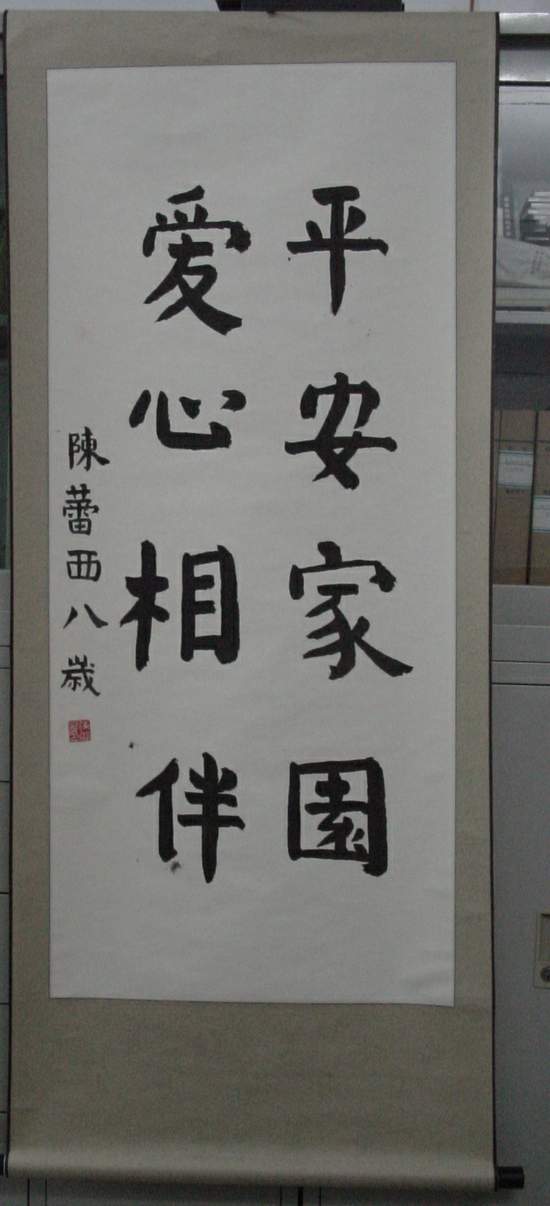 平安家園
爱心相伴
陳蕾西八歲